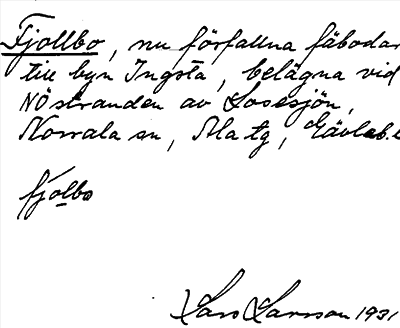 Fjollbo, nu förfallna fäbodar
till byn Ingsta, belägna vid
NÖstranden av Losesjön,
Norrala sn, Ala tg, Gävleb.l
fjolbo
Lars Larsson 1931